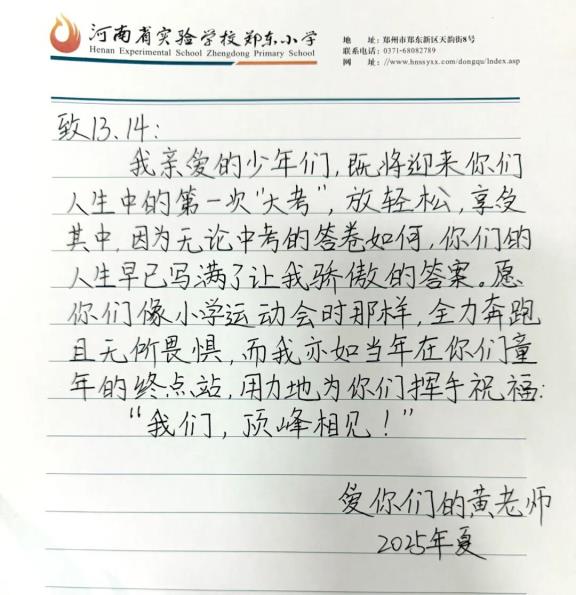 河南省实验学校郑东小学
Henan Experimental School Zhengdong Primary School
地 址:郑州市郑东新区天韵街8号
联系电话:0371-68082789
网 址://www.hnssyxx.com/dongqu/Index.asp
致13.14:
我亲爱的少年们,既将迎来你们
人生中的第一次“大考”,放轻松,享受
其中,因为无论中考的答卷如何,你们的
人生早已写满了让我骄傲的答案。愿
你们像小学运动会时那样,全力奔跑
且无所畏惧,而我亦如当年在你们童
年的终点站,用力地为你们挥手祝福:
“我们,顶峰相见!”
爱你们的黄老师
2025年夏